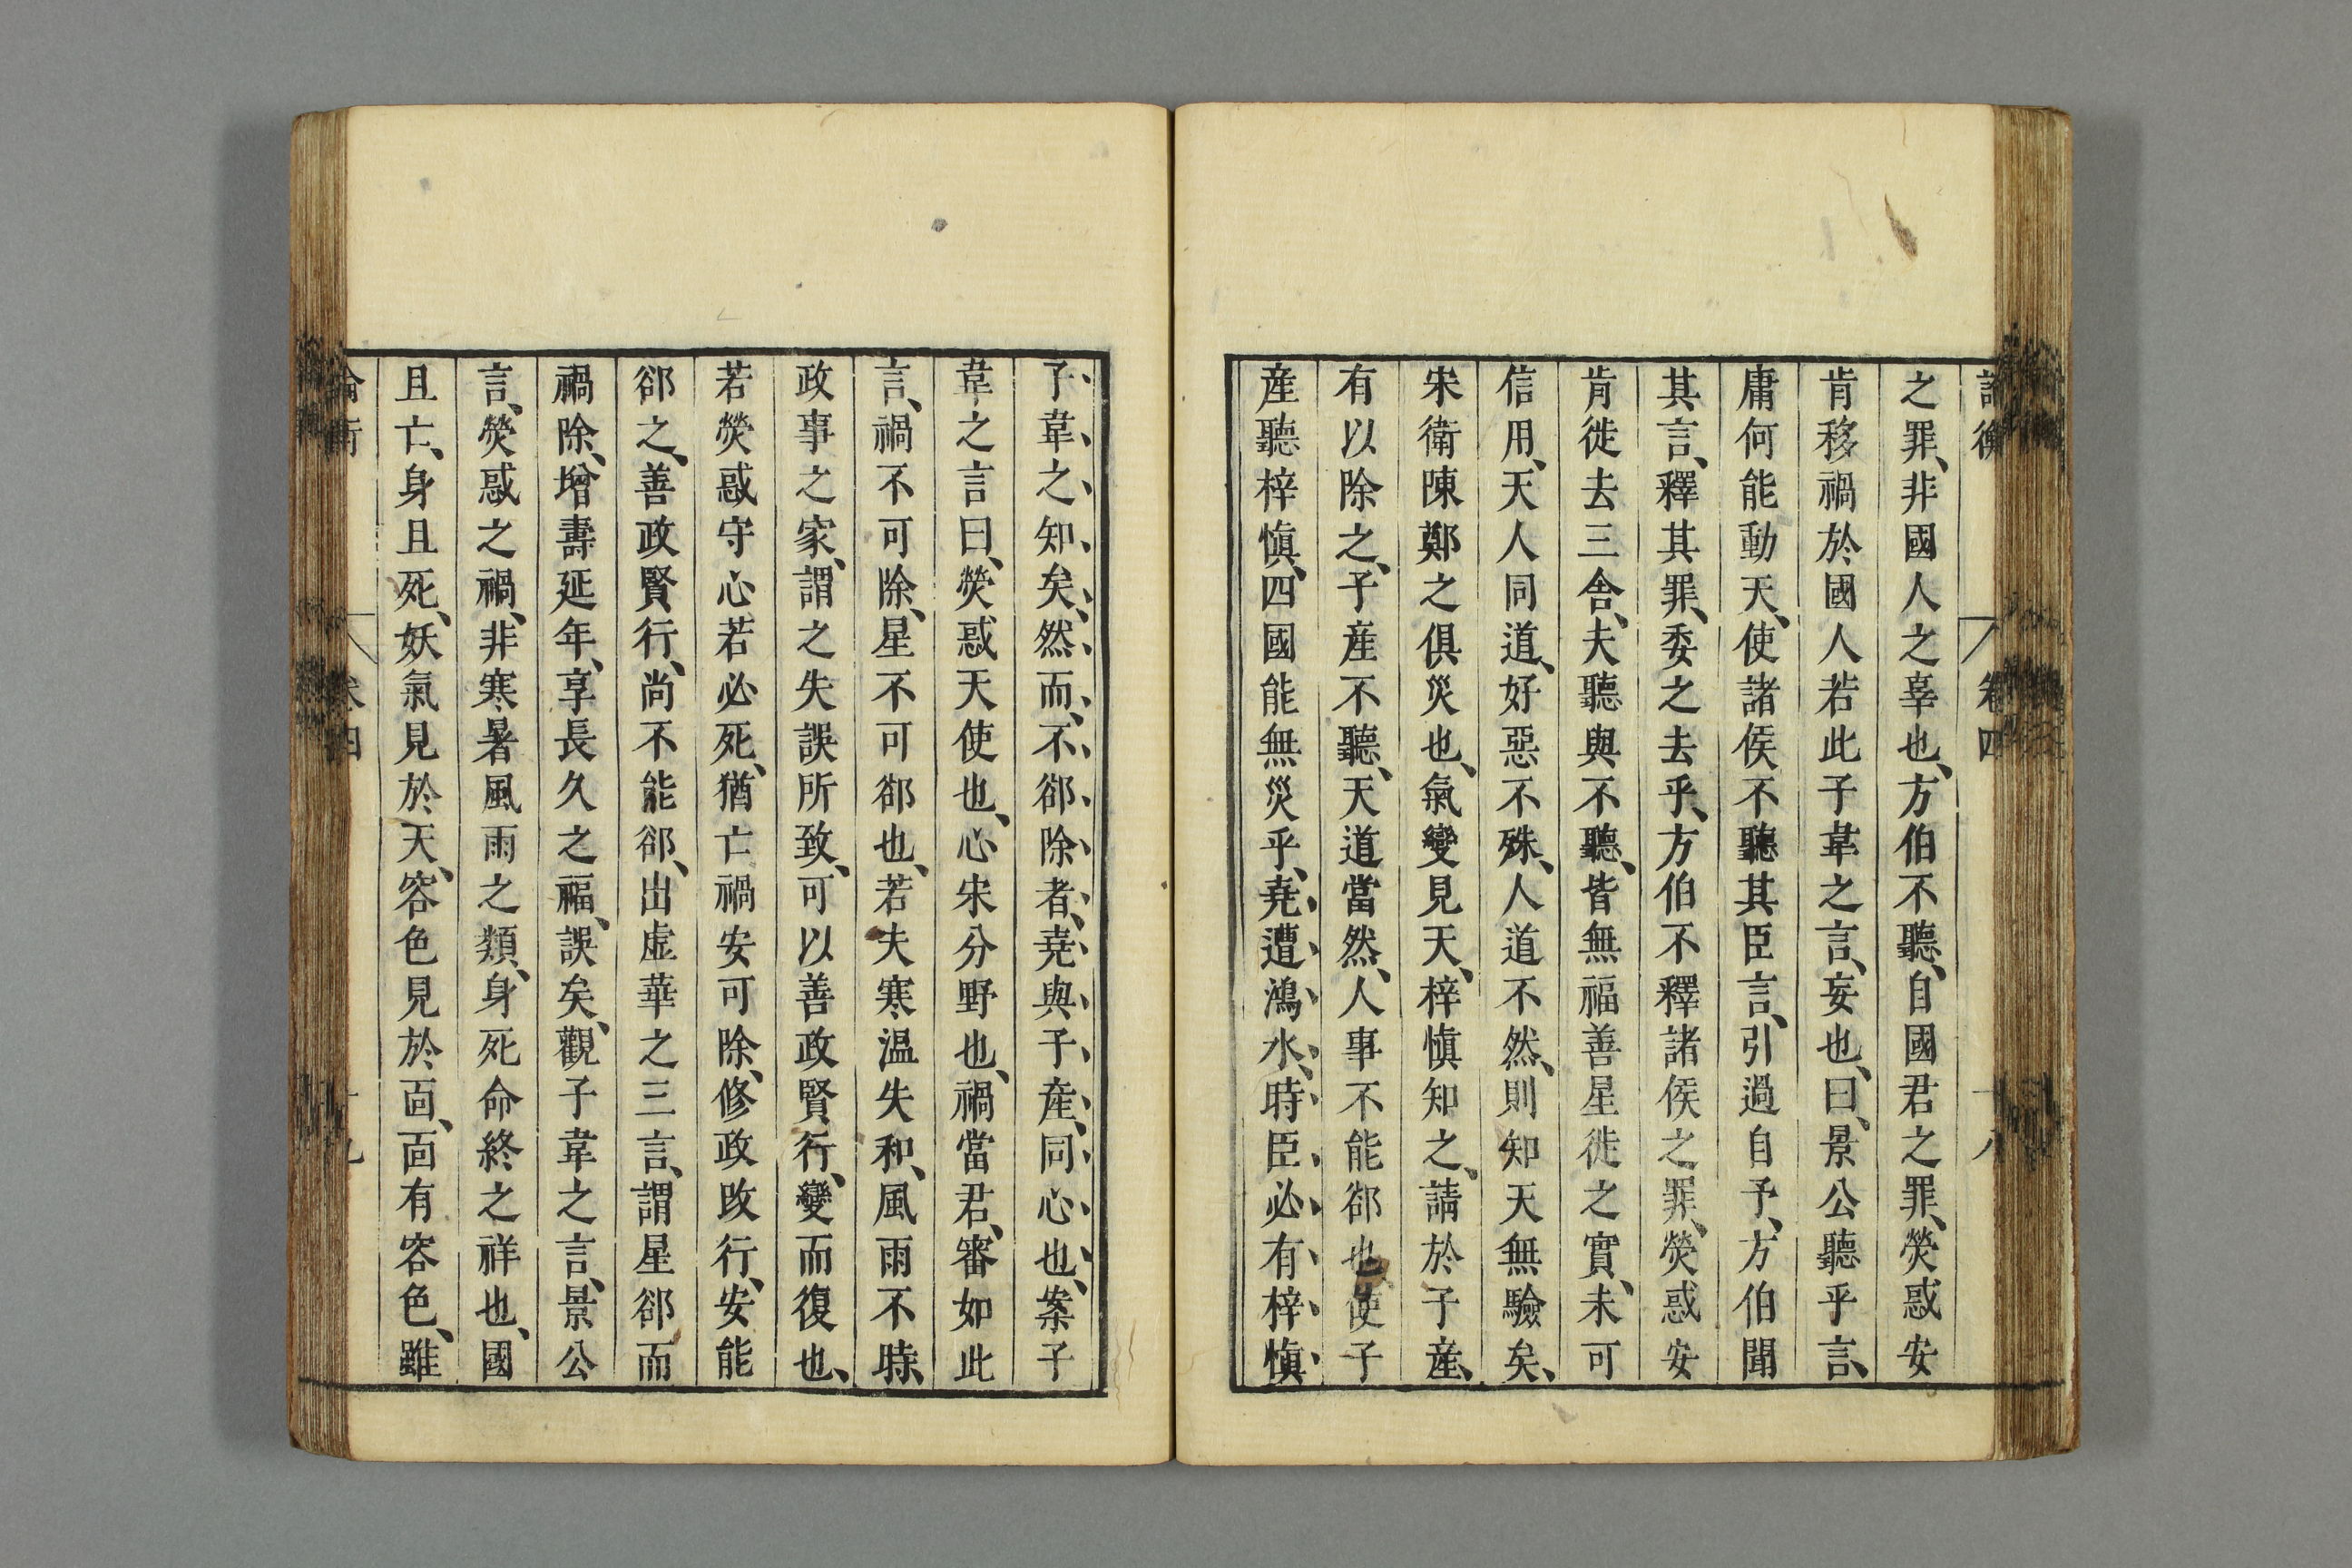 論衡 卷四 十八
之罪、非國人之辜也、方伯不聽、自國君之罪、熒惑安
肯移禍於國人若此子韋之言、妄也、曰、景公聽乎言、
庸何能動天、使諸侯不聽其臣言、引過自予、方伯聞
其言、釋其罪、委之去乎、方伯不釋諸侯之罪、熒惑安
肯徙去三舍、夫聽與不聽、皆無福善星徙之實、未可
信用、天人同道、好惡不殊、人道不然、則知天無驗矣、
宋衛陳鄭之俱災也、氣變見天、梓慎知之、請於子產、
有以除之、子產不聽、天道當然、人事不能郤也使子
產聽梓慎、四國能無災乎、堯遭鴻水、時臣必有梓慎
子韋之知矣、然而不郤除者、堯與子產、同心也、案子
韋之言曰、熒惑天使也、心宋分野也、禍當君、審如此
言、禍不可除、星不可郤也、若夫寒溫失和、風雨不時、
政事之家、謂之失誤所致、可以善政賢行、變而復也、
若熒惑守心若必死、猶亡禍安可除、修政改行、安能
郤之、善政賢行、尚不能郤、出虛華之三言、謂星郤而
禍除、增壽延年、享長久之福、誤矣、觀子韋之言、景公
言、熒惑之禍、非寒暑風雨之類、身死命終之祥也、國
且亡、身且死、妖氣見於天、容色見於面、面有容色、雖
論衡 卷四 十九